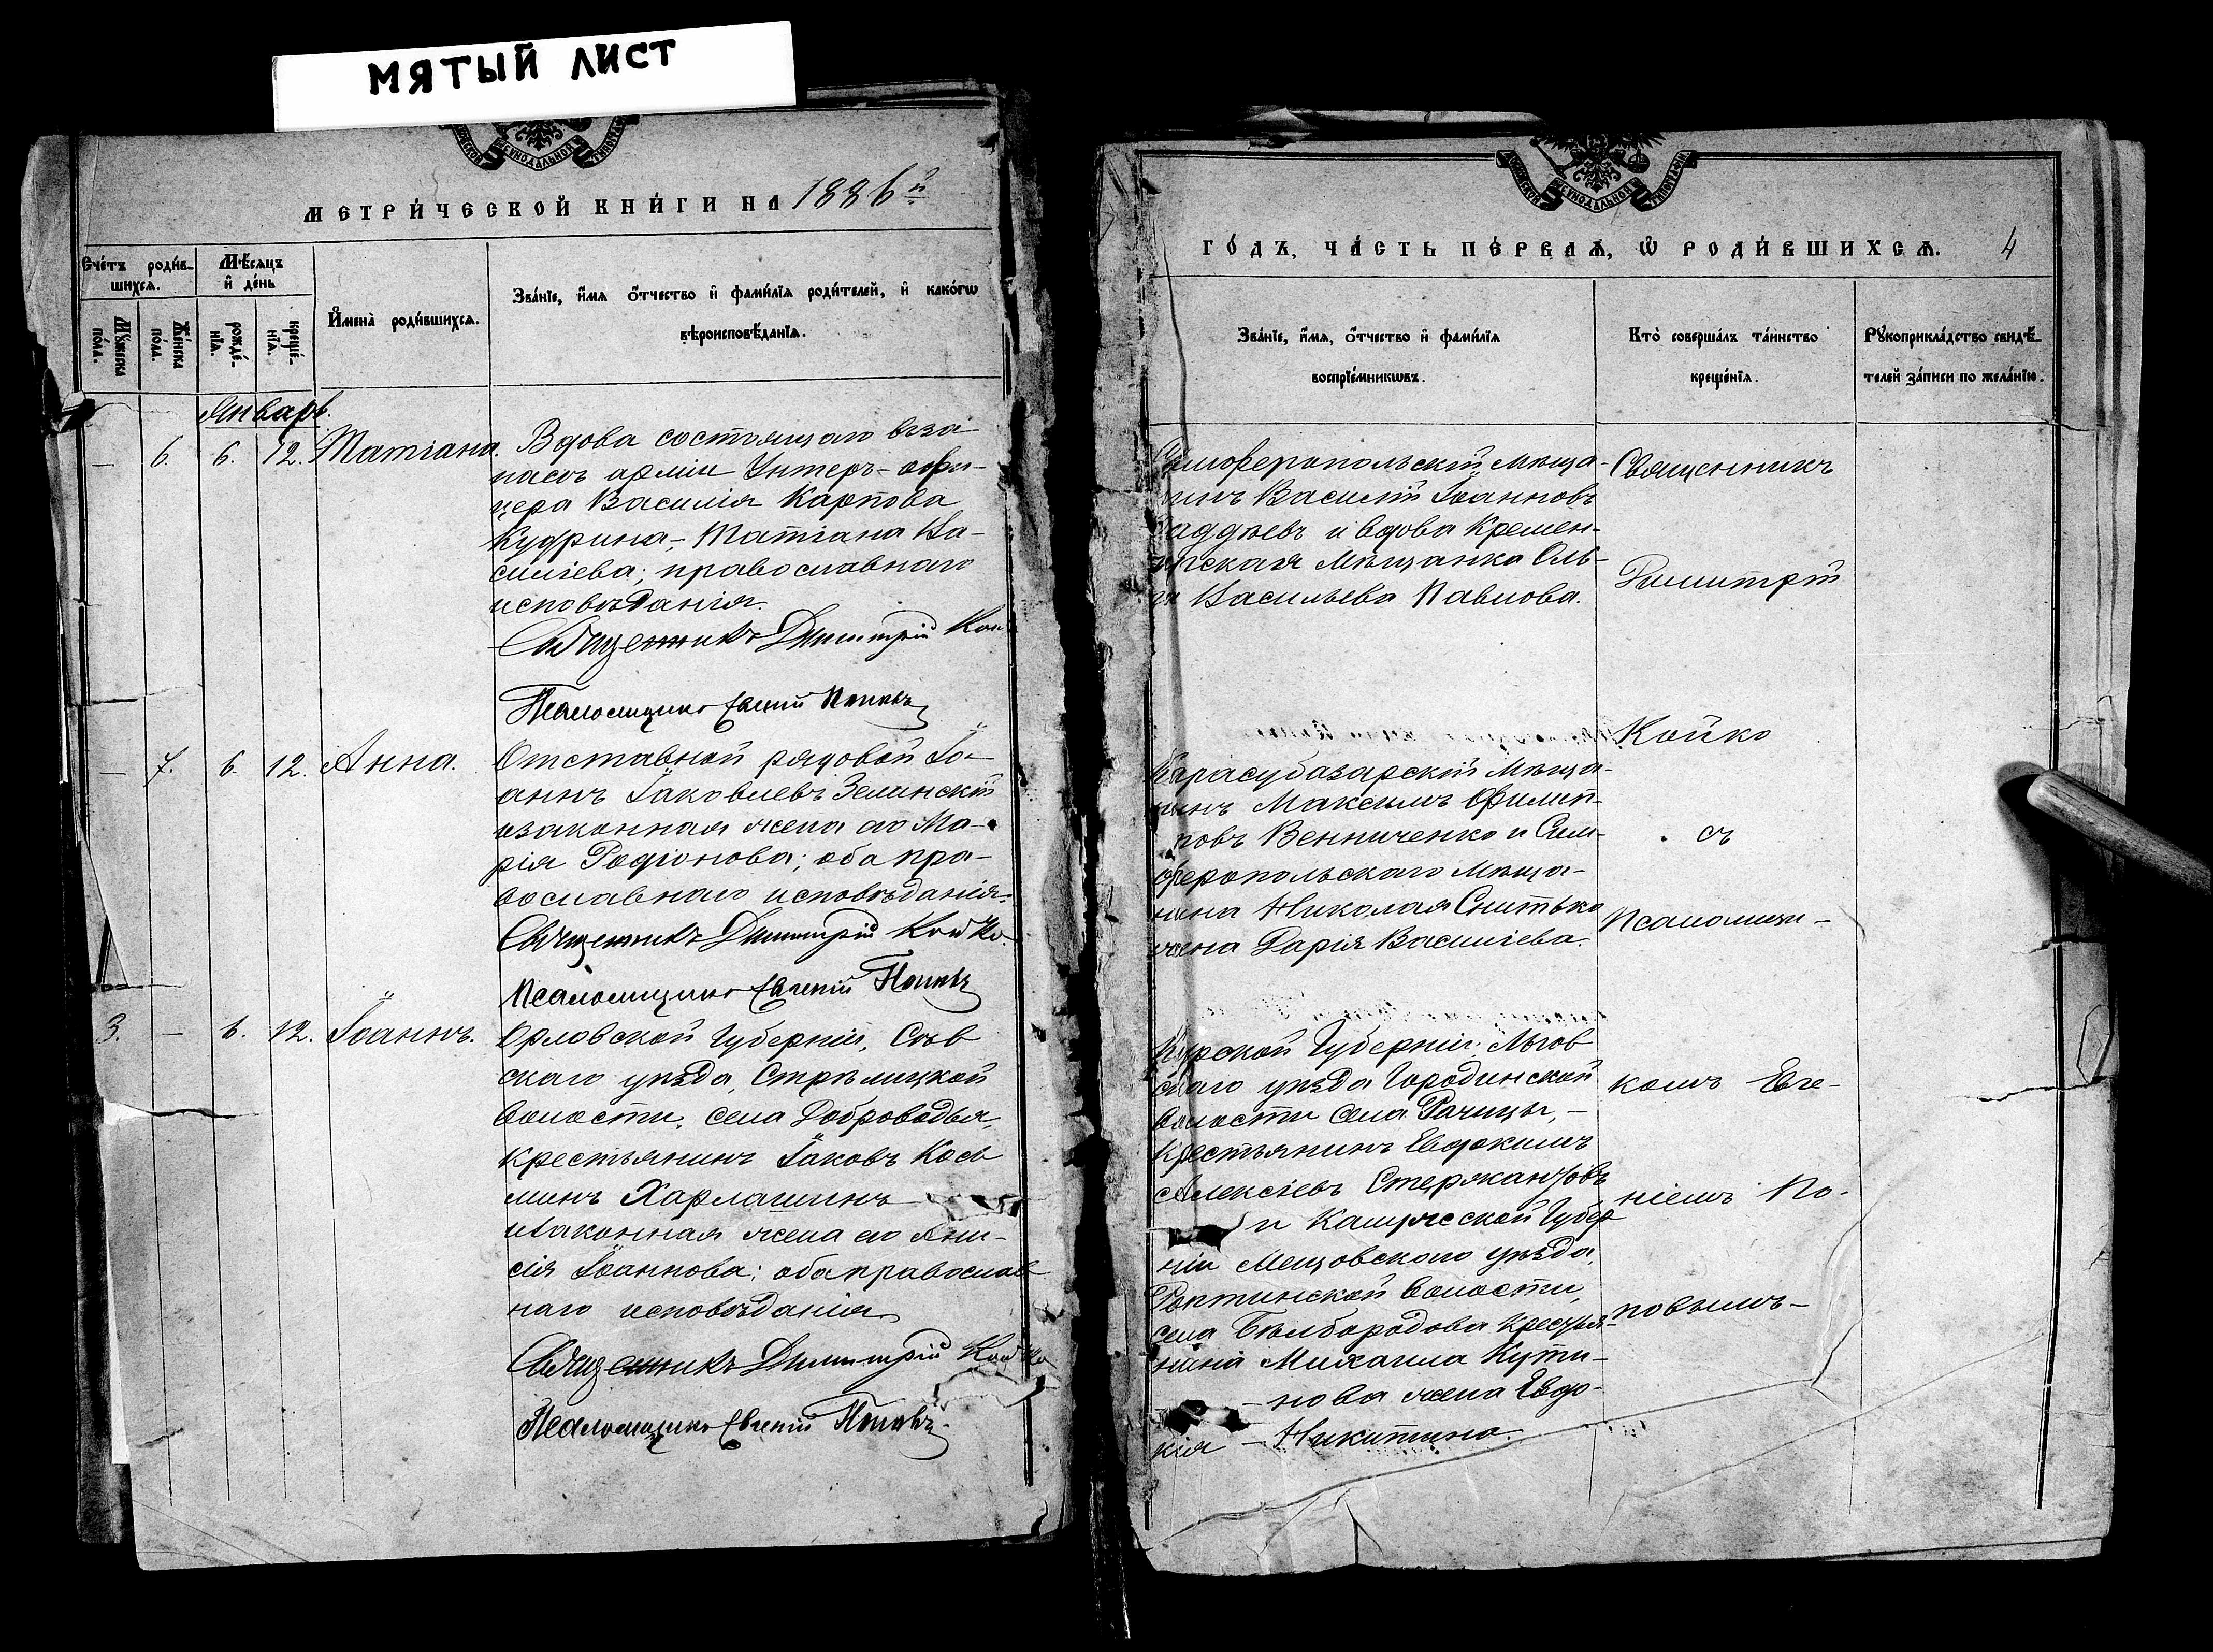 МЯТЫЙ ЛИСТ
МЕТРИ́ЧЕСКОЙ КНИ́ГИ НА 1886й
Сче́тъ роди́в-
шихся.
Мѣ́сяцъ
и҆ де́нь
Мꙋ́жеска
по́ла.
Же́нска
по́ла.
рожде́-
нїѧ.
креще́-
нїѧ.
И҆мена̀ роди́вшихсѧ.
Зва́нїе, и҆́мѧ ѻ҆́тчество и҆ фами́лїѧ роди́телей, и҆ како́гѡ
вѣроисповѣ́данїѧ.
Январь.
— 6. 6. 12. Татіана. Вдова состоящаго въ за-
пасѣ арміи Унтеръ-офи-
цера Василія Карпова
Кудрина-, Татіана Ва-
силіева; православнаго
исповѣданія.
Священникъ Димитрій
Псаломщикъ Евгеній Поповъ
— 7. 6. 12. Анна. Отставной рядовой Іо-
аннъ Іаковлевъ Зелинскій
и законная жена его Ма-
рія Родіонова; оба пра-
вославнаго исповѣданія.
Священникъ Димитрій Койко.
Псаломщикъ Евгеній Поповъ
3. — 6. 12. Іоаннъ. Орловской Губерніи, Сѣв
скаго уѣзда, Стрѣлицкой
волости, села Доброводья,
крестьянинъ Іаковъ Кось
минъ Харлашинъ
и законная жена его Ани-
сія Іоаннова; оба православ
наго исповѣданія
Священникъ Димитрій Койко
Псаломщикъ Евгеній Поповъ.
МОСКОВСКОЙ СѴНОДАЛЬНОЙ ТИПОГРАФІИ
ГО́ДЪ, ЧА́СТЬ ПЕ́РВАѦ, Ѡ҆ РОДИ́ВШИХСѦ. 4
Зва́нїе, и҆́мѧ, ѻ҆́тчество и҆ фами́лїѧ
воспрїе́мникѡвъ.
Кто̀ соверша́лъ та́инство
креще́нїѧ.
Рꙋкоприкла́дство свидѣ́-
телей за́писи по жела́нїю.
Симферопольскій мѣща-
нинъ Василій Іоанновъ
и вдова Кремен-
чугская мѣщанка Оль-
га Васильева Павлова.
Карасубазарскій мѣща-
нинъ Максимъ Филип-
повъ Венниченко и Сим-
феропольскаго мѣща-
нина Николая Снитько
жена Дарія Василіева.
Курской Губерніи, Льгов
скаго уѣзда Городинской
волости села Рачицы,-
крестьянинъ Евдокимъ
Алексіевъ Стержантовъ
и Калужской Губер
ніи Мещовскаго уѣзда,
волости,
села крестья-
нина Михаила Кути-
-нова жена Евдо-
кія - Никитина.
Священникъ
Димитрій
Койко
съ
псаломщи-
комъ Евге-
ніемъ По-
повымъ-